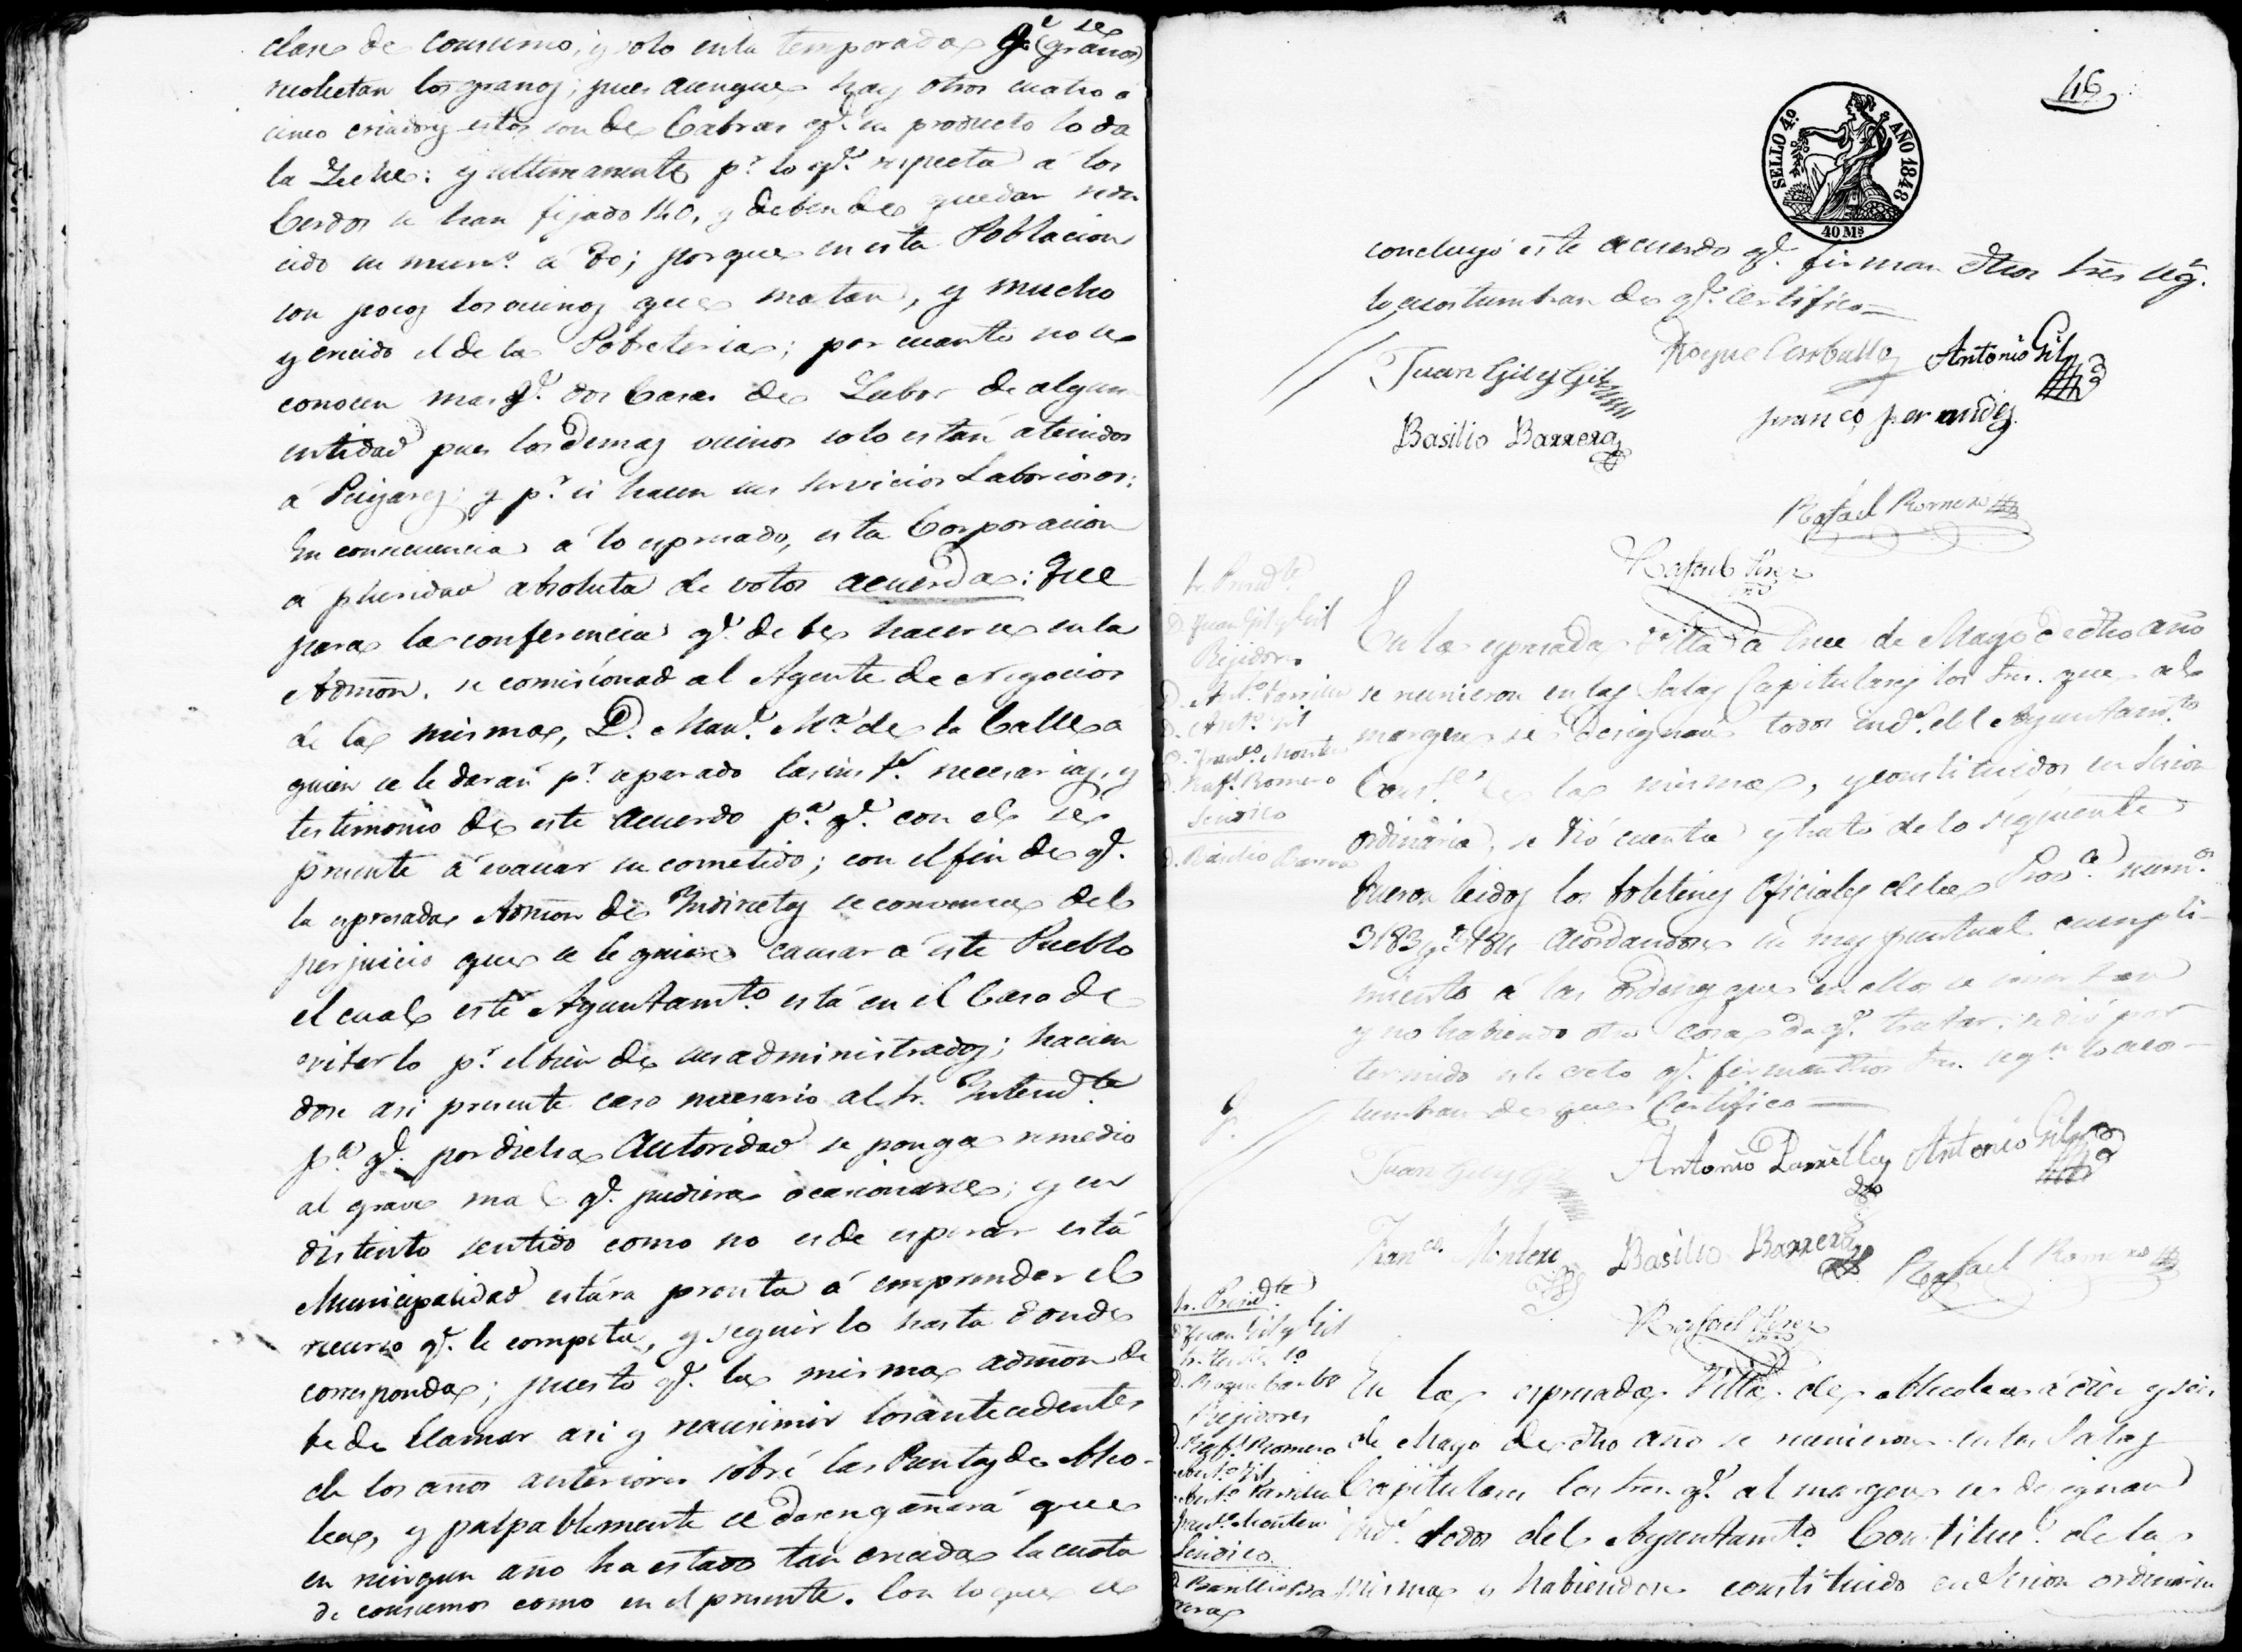 clase de consumo, y solo en la temporada q.e se (granos)
recolectan los granos; pues aunque hay otros cuatro ó
cinco criadores estos son de Cabras q.e su producto lo da
la Leche: y ultimamente p.r lo q.e respecta á los
Cerdos se han fijado 140, y deben de quedar redu
cido su num.o á 80; porque en esta Poblacion
son pocos los vecinos que matan, y mucho
y crecido el de la Pobreteria; por cuanto no se
conocen mas q.e dos Casas de Labor de algun
entidad pues los demas vecinos solo están atenidos
á Peujares; y p.r si hacen sus servicios Laboriosos:
En consecuencia á lo espresado, esta Corporacion
á pluridad absoluta de votos acuerda: Que
para la conferencia q.e debe hacerse en la
Admon. se comisionad al Agente de Negocios
de la misma, D. Man.l M.a de la Calle á
quien se le darán p.r separado las necesarias, y
testimonio de este acuerdo p.a q.e con el se
presente á evacuar su cometido; con el fin de q.e
la espresada Admon de Indirectas se convenza del
perjuicio que se le quiere causar á este Pueblo
el cual este Ayuntamto está en el Caso de
evitarlo p.r el bien de sus administrados; hacien
dose asi presente caso necesario al Sr. Intend.te
p.a q.e por dicha Autoridad se ponga remedio
al grave mal q.e pudiera ocasionarse; y en
distinto sentido como no es de esperar está
Municipalidad estára pronta á emprender el
recurso q.e le competa, y seguirlo hasta donde
corresponda; puesto q.e la misma admon de
be de llamar asi y reasumir los antecedentes
de los años anteriores sobre las Rentas de Alco-
lea, y palpablemente se desengañará que
en ningun año ha estado tan crecida la cuota
de consumos como en el presente. Con lo que se
46
SELLO 4º AÑO 1848
40 Ms
concluyó este acuerdo q.e firman dhos Sres seg.n
lo acostumbran de q.e certifico=
Juan Gil y Gil
Roque Carballo
Antonio Gil
Basilio Barrera
Franco fernandez
Rafael Romero
Rafael Perez
Sr. Presid.te
D. Juan Gil y Gil
Rejidores
D. Ant.o Parrilla
D. Ant.o Gil
D. Fran.co Montero
D. Raf.l Romero
Sindico
D. Basilio Barrera
En la espresada Villa á trece de Mayo de dho año
se reunieron en las Salas Capitulares los Sres. que al
margen se designan todos ind.s del Ayuntam.to
Const.l de la misma, y constituidos en Sesion
ordinaria, se dió cuenta y trató de lo siguiente
Fueron leidos los boletines Oficiales de la Prov.a num.os
3183 y 3184 acordandose su mas puntual cumpli-
miento á las ordenes que en ellos se insertan
y no habiendo otra cosa de q.e tratar, se dió por
terminado este acto q.e firman dhos Sres. seg.n lo acos-
tumbran de que Certifico=
Juan Gil y Gil
Antonio Parrilla
Antonio Gil
Fran.co Montero
Basilio Barrera
Rafael Romero
Rafael Perez
Sr. Presid.te
D. Juan Gil y Gil
Sr. Ten.te 1.o
D. Roque Carba
Rejidores
D. Raf.l Romero
Ant.o Gil
Ant.o Parrilla
Fran.co Montero
Sindico
D. Basilio Ba
rrera
En la espresada Villa de Alcolea á diez y seis
de Mayo de dho año se reunieron en las Salas
Capitulares los Sres. q.e al margen se designan
ind.s todos del Ayuntamto Constituc.l de la
misma y habiendose constituido en Sesion ordinaria